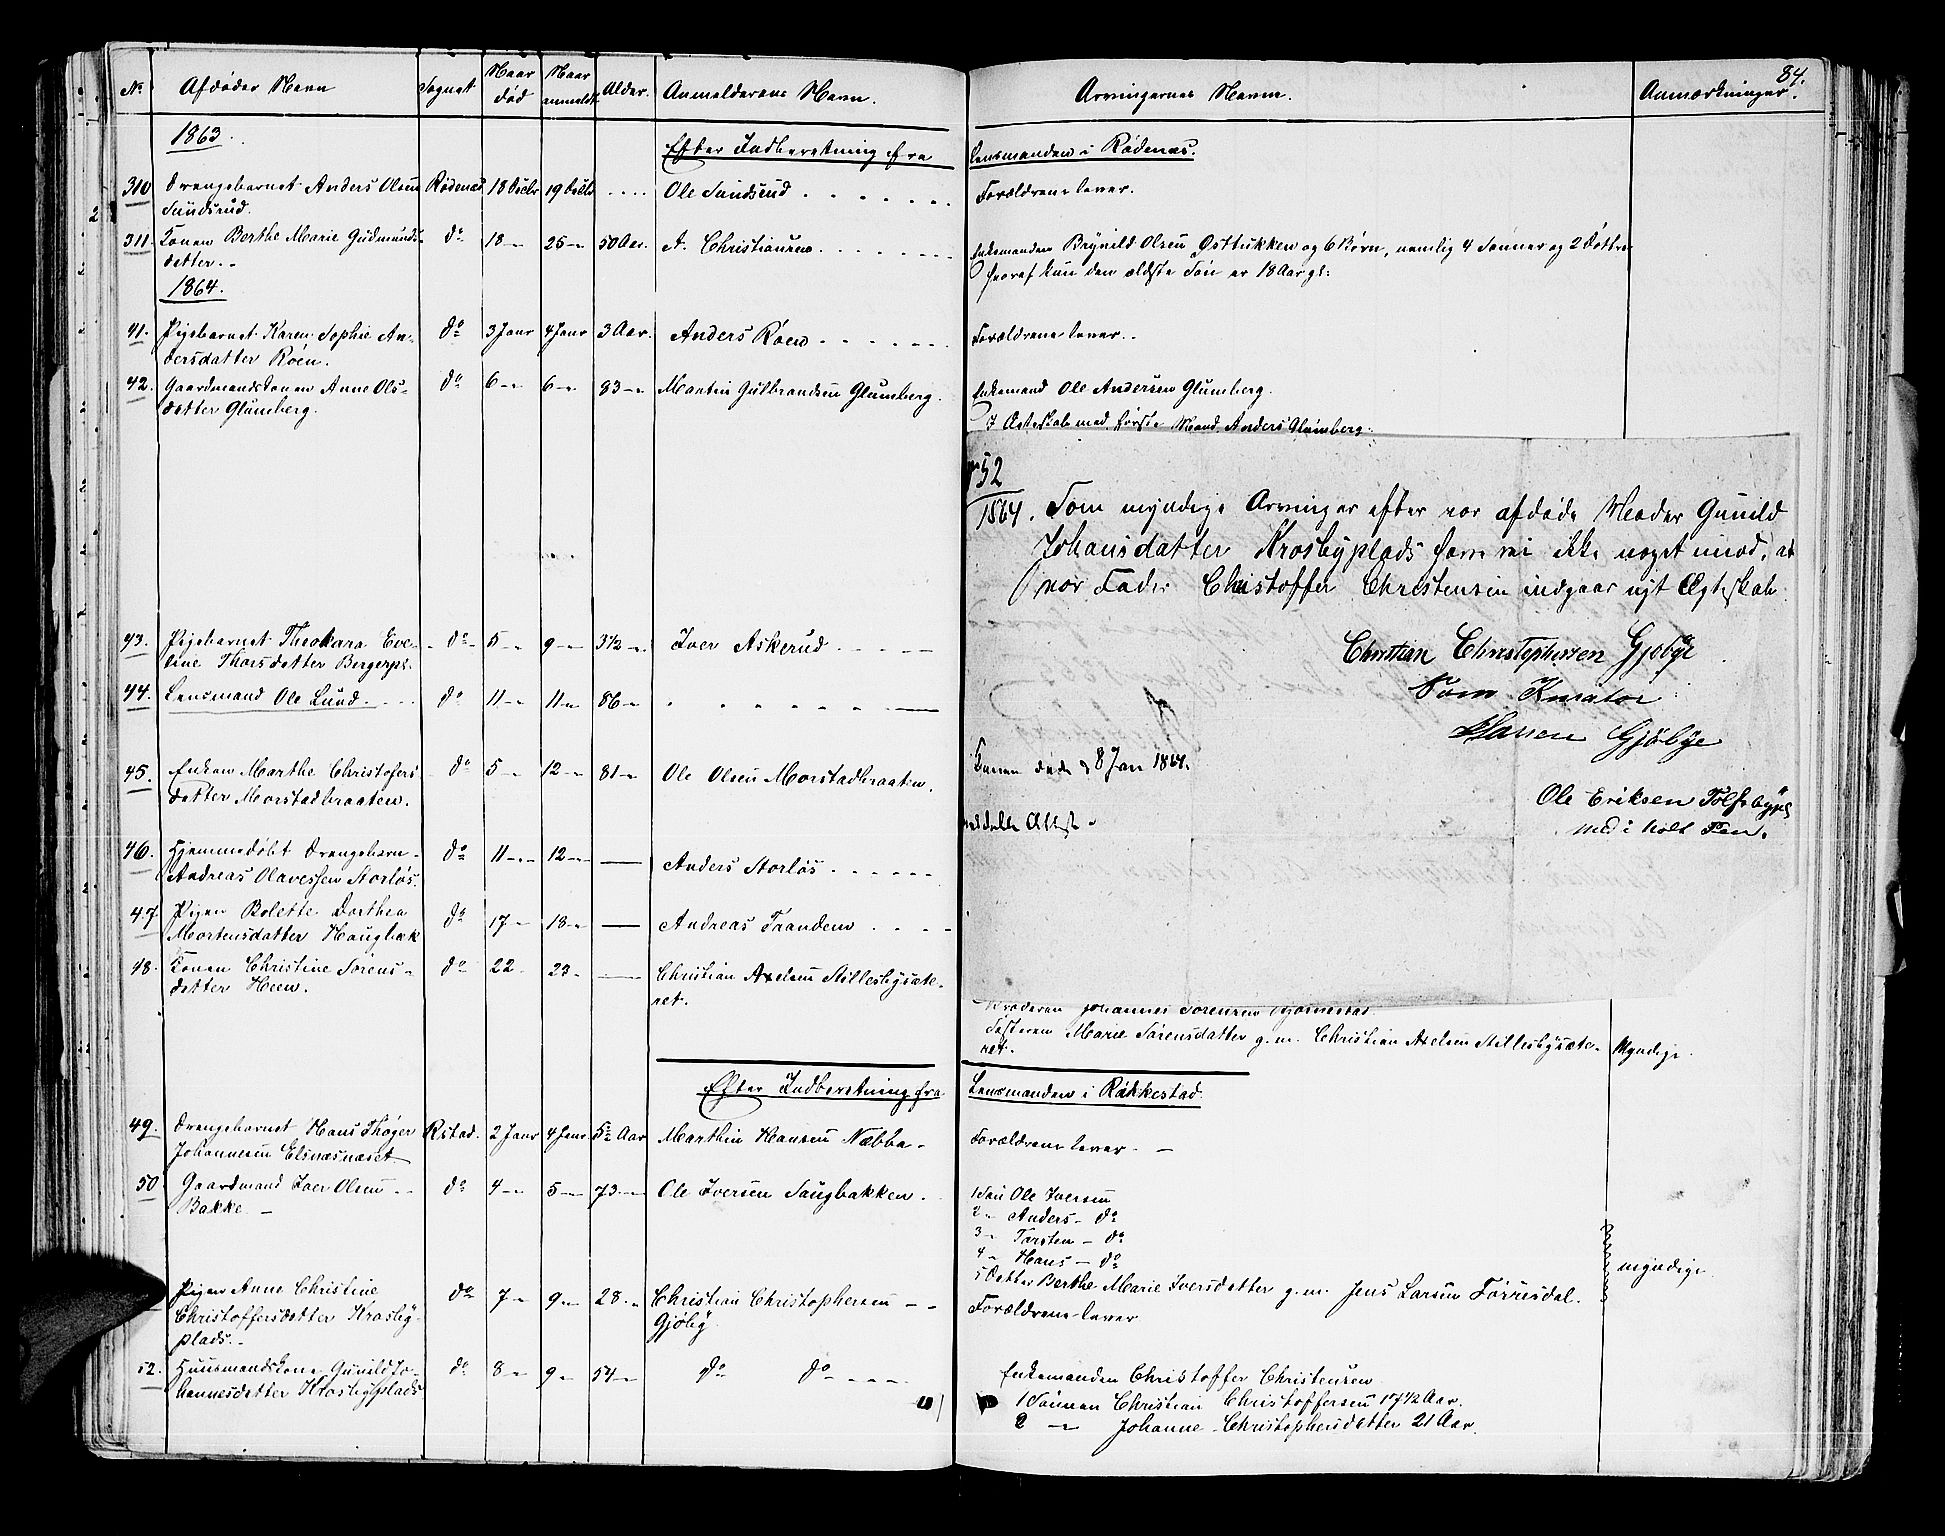 84.
No. Afdødes Navn Sognet Naar død Naar anmeldt Alder. Anmelderens Navn. Arvingernes Navne. Anmærkninger.
1863.
Efter Indberetning fra Lensmanden i Rødenæs.
310 Drengebarnet Anders Olsen Rødenæs 18 Decbr 19 Decbr .... Ole Sundsrud Forældrene lever.
Sundsrud.
311. Konen Berthe Marie Gudmunds- do 18 -"- 25 -"- 50 Aar. A. Christiansen Enkemanden Brynild Olsen Østtukken og 6 Børn, nemlig 4 Sønner og 2 Døttre
datter. hvoraf kun den ældste Søn er 18 Aar gl:
1864.
41. Pigebarnet Karen Sophie An- do 3 Janr 4 Janr 3 Aar. Anders Roen Forældrene lever.
dersdatter Roen.
42. Gaardmandskonen Anne Ols- do 6 -"- 6 -"- 83 -"- Martin Gulbrandsen Glumberg. Enkemand Ole Andersen Glumberg.
datter Glumberg.
I Ægteskab med første Mand Anders Glumberg:
No 52
1864. Som myndige Arvinger efter vor afdøde Moder Gunild
Johansdatter Krosbyplads have vi ikke noget imod, at
vor Fader Christoffer Christensen indgaar nyt Ægteskab.
Christian Christophersen Gjøbye
Som Kurator
Hansen Gjøbye
Konen døde d 8 Jan 1864.
Ole Eriksen Tolfsbypl
meddelt Attest.
med i holt Pen.
43. Pigebarnet Theokara Eve- do 5 -"- 9 -"- 3½ -"- Iver Askerud
line Thorsdatter Bergerpl.
44. Lensmand Ole Lund. do 11 -"- 11 -"- 86 -"-
45. Enken Marthe Christofers- do 5 -"- 12 -"- 81 -"- Ole Olsen Morstadbraaten.
datter Morstadbraaten.
46. Hjemmedøbt Drengebarn do 11 -"- 12 -"- — Anders Storløs
Andreas Olavessen Storløs.
47. Pigen Bolette Dorthea do 17 -"- 18 -"- — Andreas Tranden
Mortensdatter Haugbæk
48. Konen Christine Sørens- do 22 - 23 - — Christian Axelsen Stillesbysæte-
datter Heen. ret.
Broderen Johannes Sørensen
Søsteren Marie Sørensdatter g. m. Christian Axelsen Stillesbysæte- Myndige.
ret.
Efter Indberetning fra Lensmanden i Rakkestad.
49. Drengebarnet Hans Thøger Rstad. 2 Janr 4 Janr 5½ Aar Marthin Hansen Næbba Forældrene lever.
Johannesen Elsnæsnæset
50 Gaardmand Iver Olsen do 4 -"- 5 -"- 73 -"- Ole Iversen Haugbakken. 1 Søn Ole Iversen
Bakke 2 - Anders - do
3 - Torsten - do
4 - Hans - do myndige
5 Datter Berthe Marie Iversdatter g. m. Jens Larsen Tørrisdal.
Pigen Anne Christine do 7 -"- 9 -"- 28 -"- Christian Christophersen Forældrene lever
Christoffersdatter Krosby- Gjøby.
plads.
52. Huusmandskone Gunild Jo- do 8 -"- 9 -"- 54 -"- do do Enkemanden Christoffer Christensen
hannesdatter Krosbyplads 1 Sønnen Christian Christoffersen 17½ Aar.
2 — Johanne Christophersdatter 21 Aar.